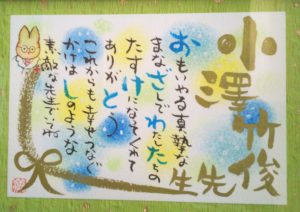 小澤竹俊
先生
おもいやる真摯な
まなざしでわたしたちの
たすけになってくれて
ありがとう
これからも幸せつなぐ
かけはしのような
素敵な先生でいてね